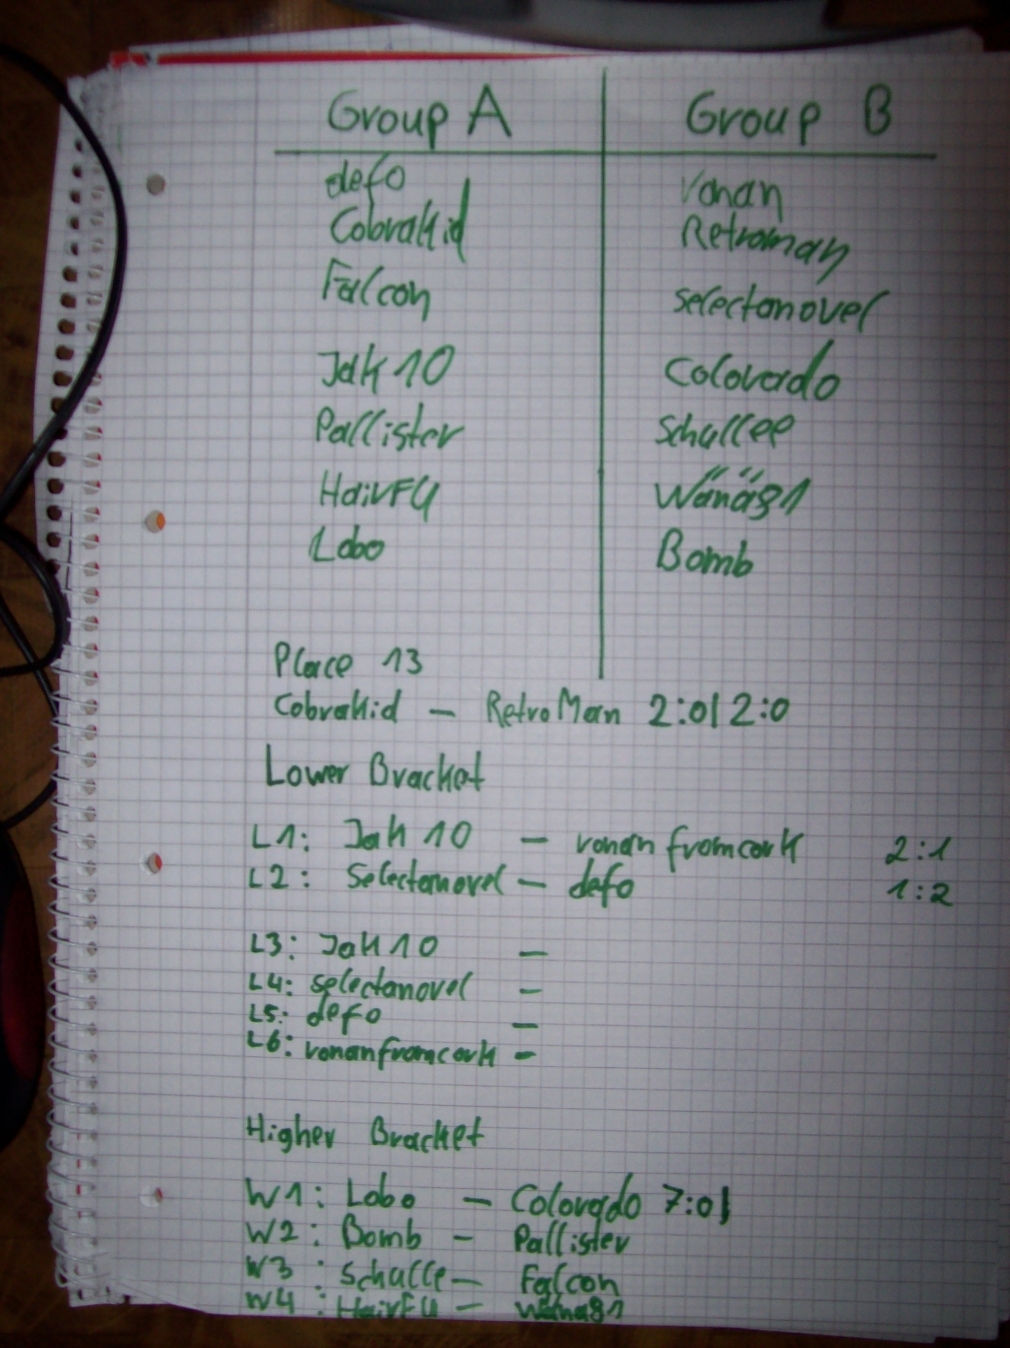 Group A Group B
defo ronan
CobraKid Retroman
Falcon selectanovel
Jak 10 Colorado
Pallister Schallee
HairFU Wänäg1
Lobo Bomb
Place 13
CobraKid — RetroMan 2:0| 2:0
Lower Bracket
L1: Jak 10 — ronanfromcork 2:1
L2: Selectanovel — defo 1:2
L3: Jak 10 —
L4: selectanovel —
L5: defo —
L6: ronanfromcork —
Higher Bracket
W1: Lobo — Colorado 7:0|
W2: Bomb — Pallister
W3: Schalle — Falcon
W4: HairFU — Wänäg1